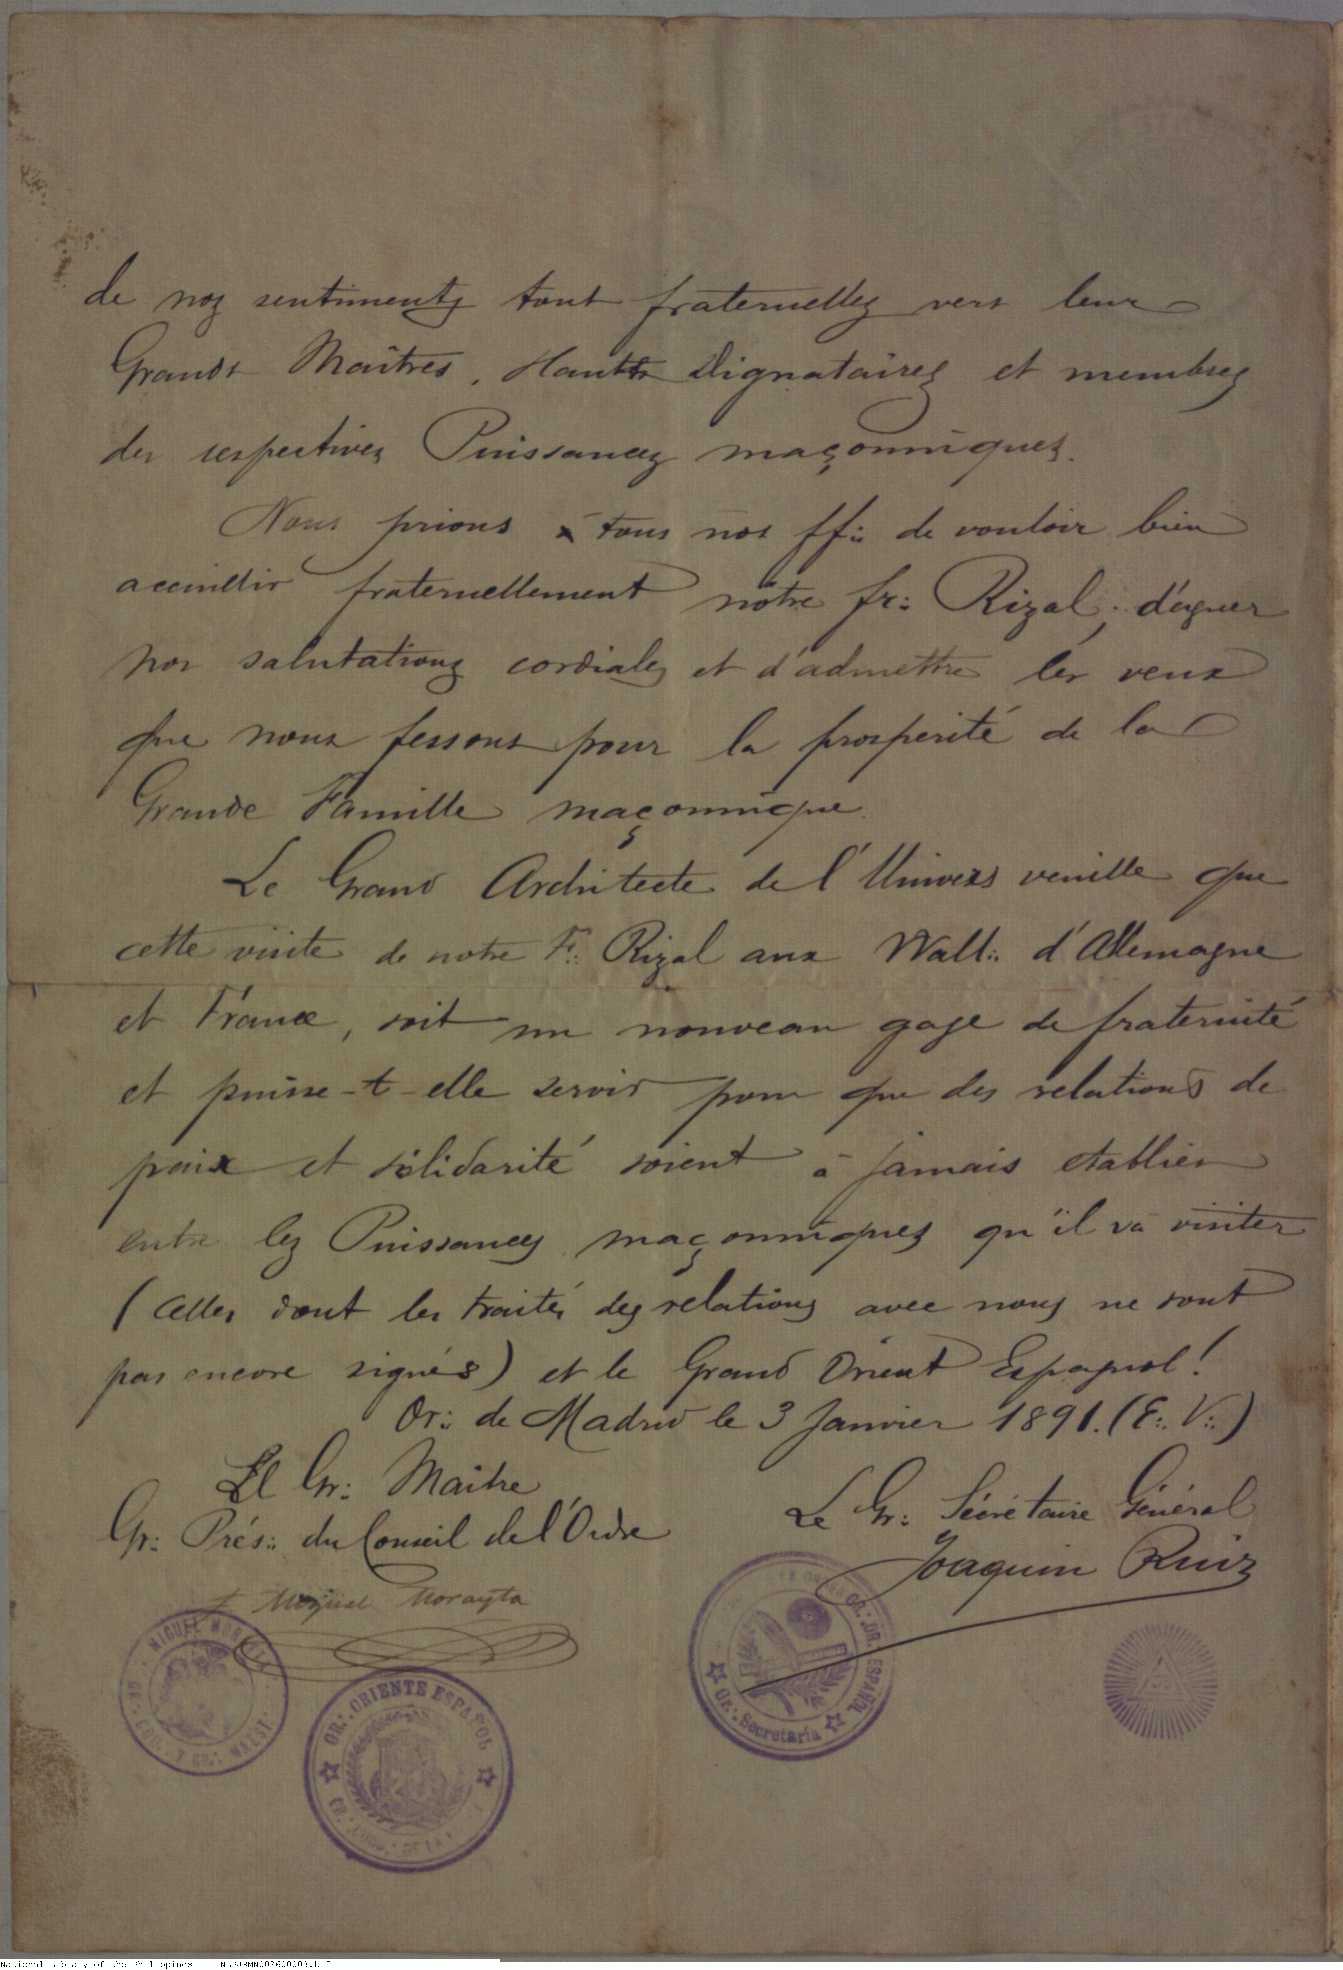 de nos sentiments tout fraternelles vers leur
Grands Maîtres, Hauts Dignataires et membres
des respectives Puissances maçonniques.
Nous prions à tous nos ff∴ de vouloir bien
accuillir fraternellement nôtre fr∴ Rizal, d'agreer
nos salutations cordiales et d'admettre les veux
que nous fessons pour la prosperité de la
Grande Famille maçonnique.
Le Grand Architecte de l'Univers veuille que
cette visite de notre F∴ Rizal aux Wall∴ d'Allemagne
et France, soit un nouveau gage de fraternité
et puisse-t-elle servir pour que des relations de
paix et solidarité soient à jamais etablies
entre les Puissances maçonniques qu'il va visiter
(celles dont les traités des relations avec nous ne sont
pas encore signés) et le Grand Orient Espagnol!
Or∴ de Madrid le 3 Janvier 1891. (E∴ V∴)
Le Gr∴ Maître
Gr∴ Prés∴ du Conseil de l'Ordre
Le Gr∴ Sécrétaire Général
Joaquin Ruiz
Miguel Morayta
MIGUEL MORAYTA
GR∴ ORIENTE ESPAÑOL
GR∴ OR. ESPAÑOL
Gr∴ Secretaría
National Library of the Philippines